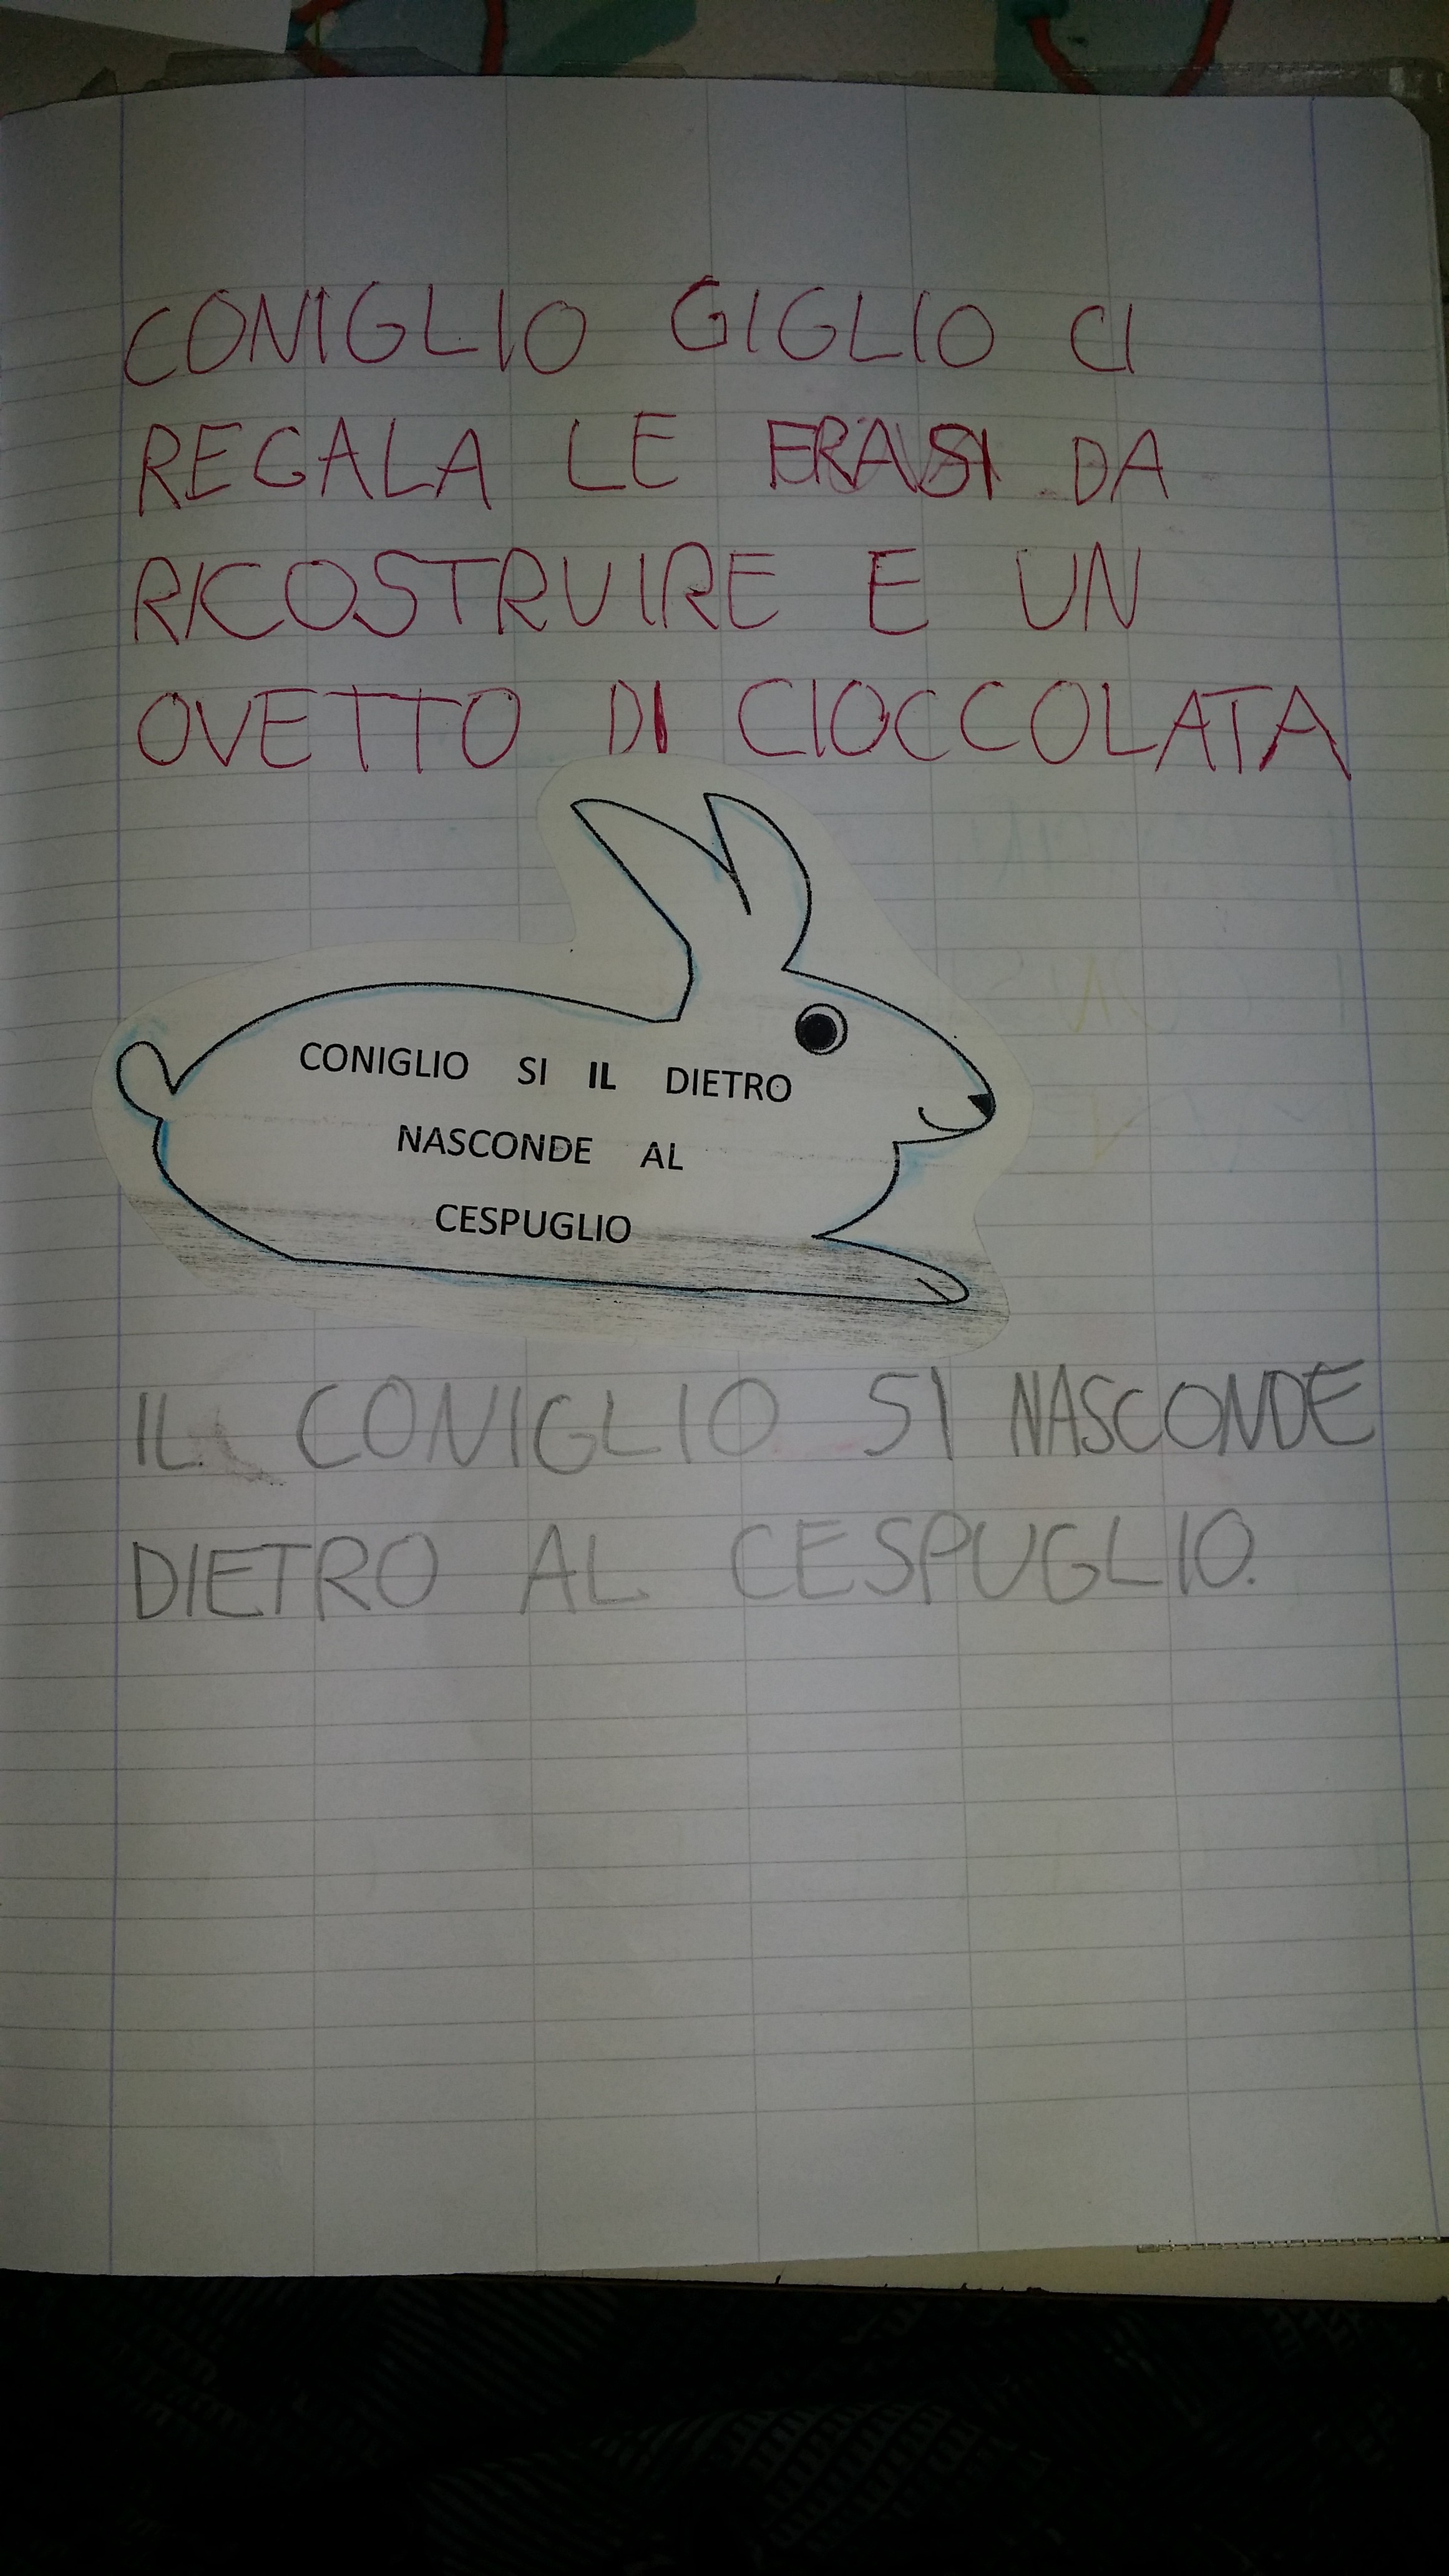 CONIGLIO GIGLIO CI
REGALA LE FRASI DA
RICOSTRUIRE E UN
OVETTO DI CIOCCOLATA
CONIGLIO SI IL DIETRO
NASCONDE AL
CESPUGLIO
IL CONIGLIO SI NASCONDE
DIETRO AL CESPUGLIO.